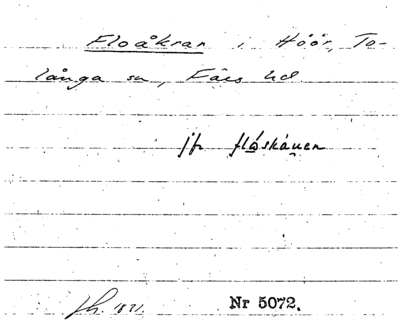 Floåkran i Höör, To-
långa sn, Färs hd
jfr flåskåuen
Lh. 1871.
Nr 5072.